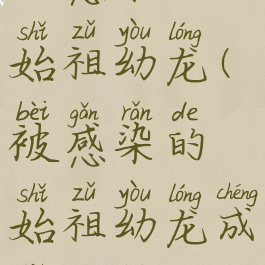 shǐ zǔ yòu lóng
始祖幼龙(
bèi gǎn rǎn de
被感染的
shǐ zǔ yòu lóng chéng
始祖幼龙成